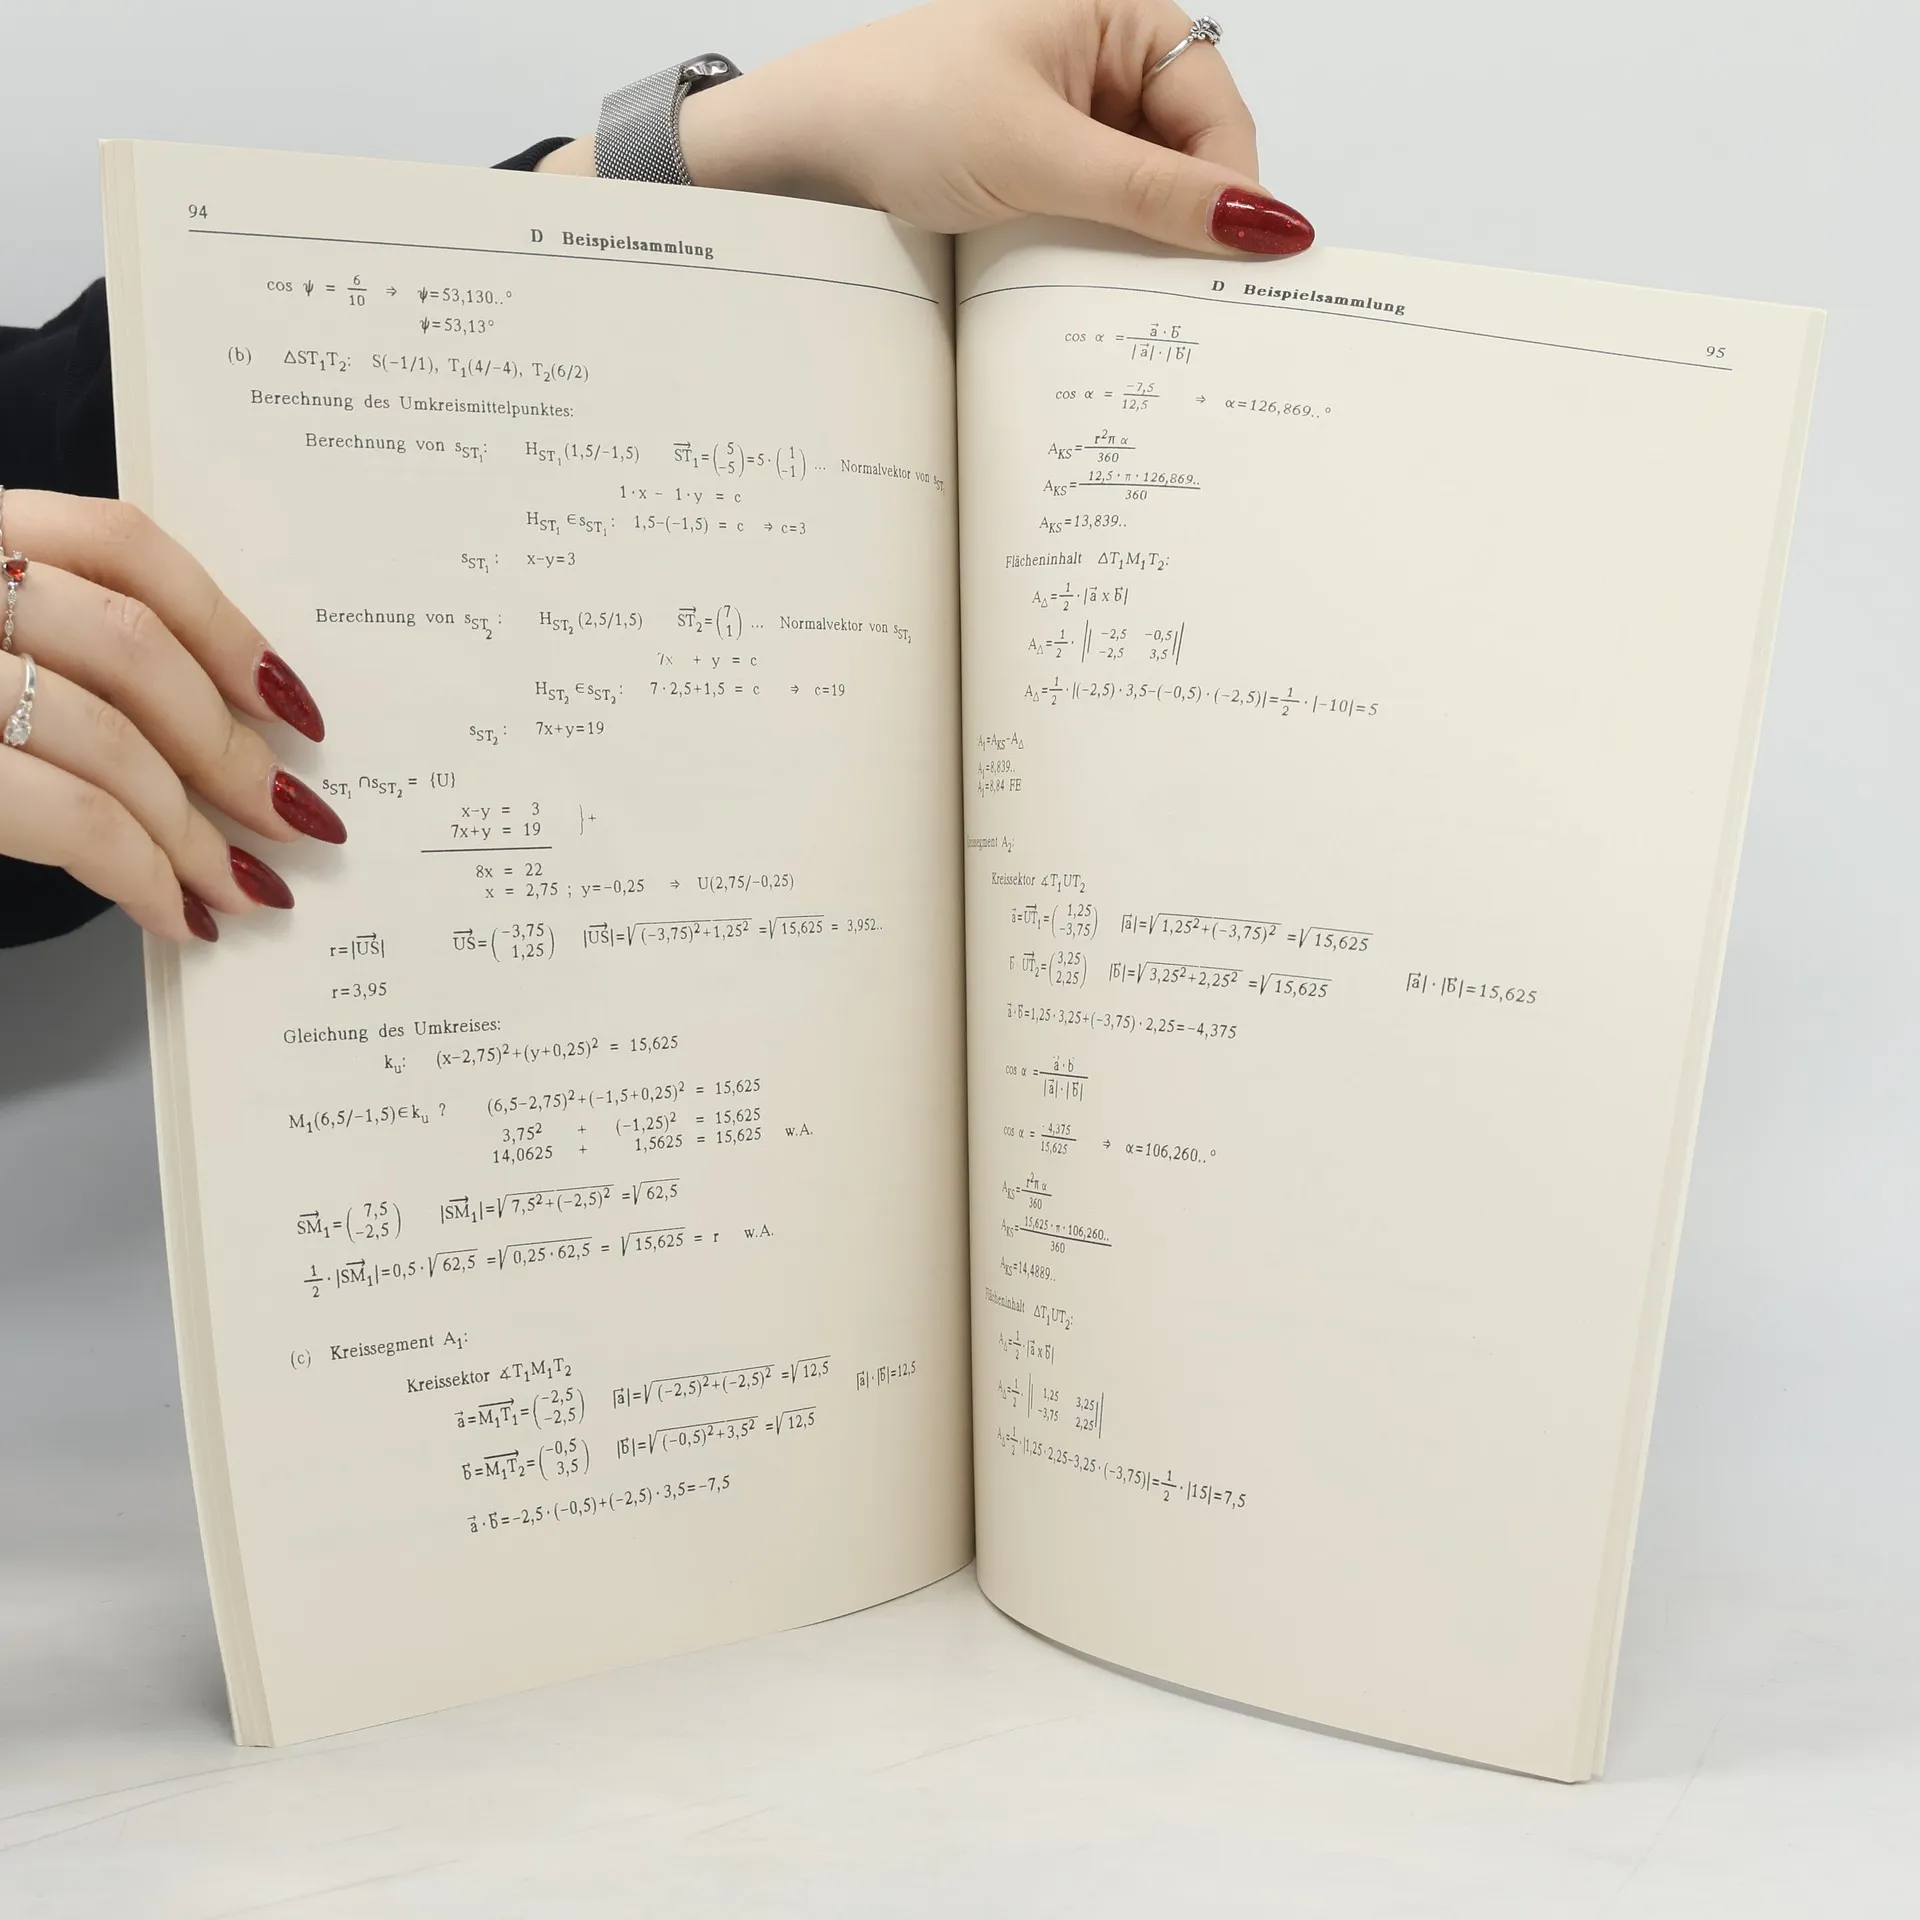 94
D Beispielsammlung
cos ψ = 6/10 ⇒ ψ=53,130..°
ψ=53,13°
(b) ΔST₁T₂: S(−1/1), T₁(4/−4), T₂(6/2)
Berechnung des Umkreismittelpunktes:
Berechnung von s_ST₁: H_ST₁(1,5/−1,5) ST₁→=(5 −5)=5·(1 −1) ... Normalvektor von s_ST₁
1·x − 1·y = c
H_ST₁ ∈ s_ST₁: 1,5−(−1,5) = c ⇒ c=3
s_ST₁: x−y=3
Berechnung von s_ST₂: H_ST₂(2,5/1,5) ST₂→=(7 1) ... Normalvektor von s_ST₂
7x + y = c
H_ST₂ ∈ s_ST₂: 7·2,5+1,5 = c ⇒ c=19
s_ST₂: 7x+y=19
s_ST₁ ∩ s_ST₂ = {U}
x−y = 3
7x+y = 19 }+
8x = 22
x = 2,75 ; y=−0,25 ⇒ U(2,75/−0,25)
r=|US→| US→=(−3,75 1,25) |US→|=√((−3,75)²+1,25²) =√15,625 = 3,952..
r=3,95
Gleichung des Umkreises:
k_u: (x−2,75)²+(y+0,25)² = 15,625
M₁(6,5/−1,5)∈k_u ? (6,5−2,75)²+(−1,5+0,25)² = 15,625
3,75² + (−1,25)² = 15,625
14,0625 + 1,5625 = 15,625 w.A.
SM₁→=(7,5 −2,5) |SM₁→|=√(7,5²+(−2,5)²) =√62,5
1/2·|SM₁→|=0,5·√62,5 =√(0,25·62,5) = √15,625 = r w.A.
(c) Kreissegment A₁:
Kreissektor ∡T₁M₁T₂
a→=M₁T₁→=(−2,5 −2,5) |a→|=√((−2,5)²+(−2,5)²) =√12,5 |a→|·|b→|=12,5
b→=M₁T₂→=(−0,5 3,5) |b→|=√((−0,5)²+3,5²) =√12,5
a→·b→=−2,5·(−0,5)+(−2,5)·3,5=−7,5
D Beispielsammlung
95
cos α = a→·b→/|a→|·|b→|
cos α = −7,5/12,5 ⇒ α=126,869..°
A_KS=r²π α/360
A_KS=12,5·π·126,869../360
A_KS=13,839..
Flächeninhalt ΔT₁M₁T₂:
A_Δ=1/2·|a→ x b→|
A_Δ=1/2·||−2,5 −0,5 −2,5 3,5||
A_Δ=1/2·|(−2,5)·3,5−(−0,5)·(−2,5)|=1/2·|−10|=5
A₁=A_KS−A_Δ
A₁=8,839..
A₁=8,84 FE
A₂:
Kreissektor ∡T₁UT₂
a→=UT₁→=(1,25 −3,75) |a→|=√(1,25²+(−3,75)²) =√15,625
b→ UT₂→=(3,25 2,25) |b→|=√(3,25²+2,25²) =√15,625 |a→|·|b→|=15,625
a→·b→=1,25·3,25+(−3,75)·2,25=−4,375
cos α = a→·b→/|a→|·|b→|
cos α = −4,375/15,625 ⇒ α=106,260..°
A_KS=r²π α/360
A_KS=15,625·π·106,260../360
A_KS=14,4889..
Flächeninhalt ΔT₁UT₂:
A_Δ=1/2·|a→ x b→|
A_Δ=1/2·||1,25 3,25 −3,75 2,25||
A_Δ=1/2·|1,25·2,25−3,25·(−3,75)|=1/2·|15|=7,5